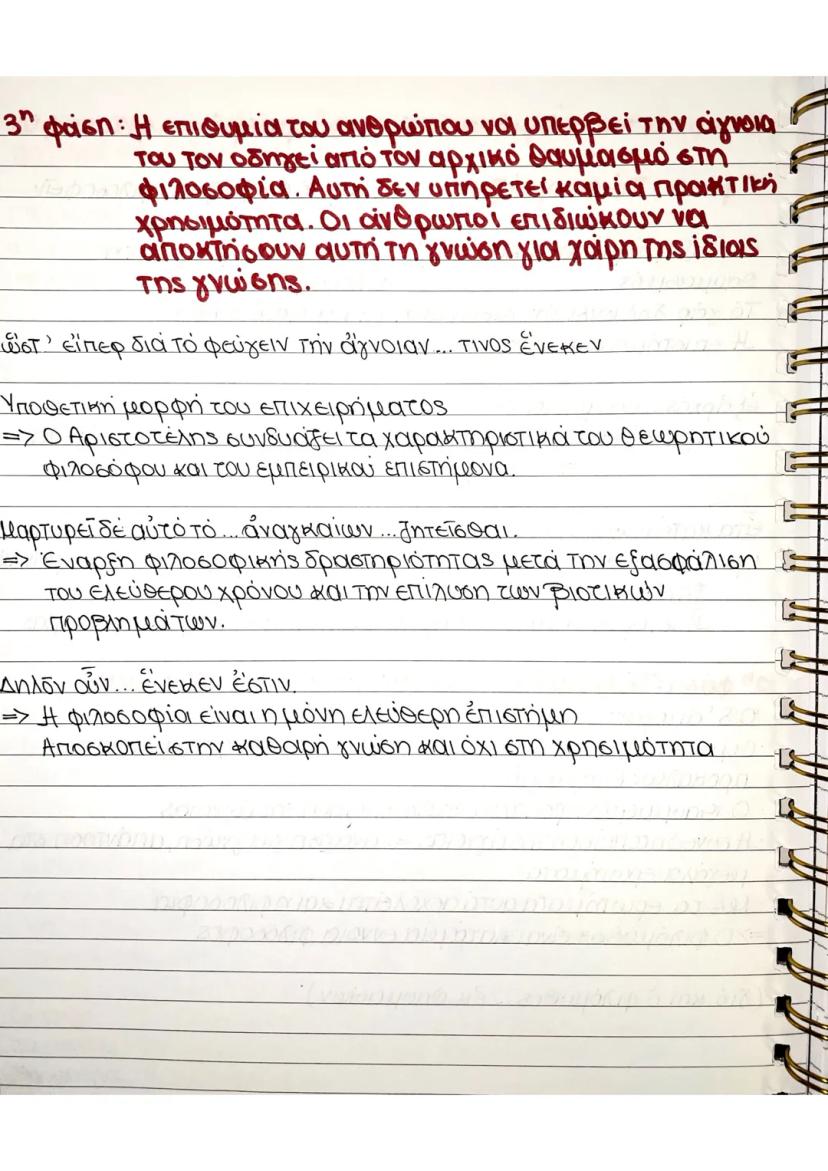 3η φάση: Η επιθυμία του ανθρώπου να υπερβεί την άγνοια
του τον οδηγεί από τον αρχικό θαυμασμό στη
φιλοσοφία. Αυτή δεν υπηρετεί καμία πρακτική
χρησιμότητα. Οι άνθρωποι επιδιώκουν να
αποκτήσουν αυτή τη γνώση για χάρη της ίδιας
της γνώσης.
ὥστ' εἴπερ διά τό φεύγειν τήν ἄγνοιαν... τινος ἕνεκεν
Υποθετική μορφή του επιχειρήματος
=> Ο Αριστοτέλης συνδυάζει τα χαρακτηριστικά του θεωρητικού
φιλοσόφου και του εμπειρικού επιστήμονα.
Μαρτυρεῖ δέ αὐτό τό... ἀναγκαίων... ζητεῖσθαι.
=> Έναρξη φιλοσοφικής δραστηριότητας μετά την εξασφάλιση
του ελεύθερου χρόνου και την επίλυση των βιοτικών
προβλημάτων.
Δηλον οὖν... ἕνεκεν ἐστιν.
=> Η φιλοσοφία είναι η μόνη ελεύθερη ἐπιστήμη
Αποσκοπεί στην καθαρή γνώση και όχι στη χρησιμότητα